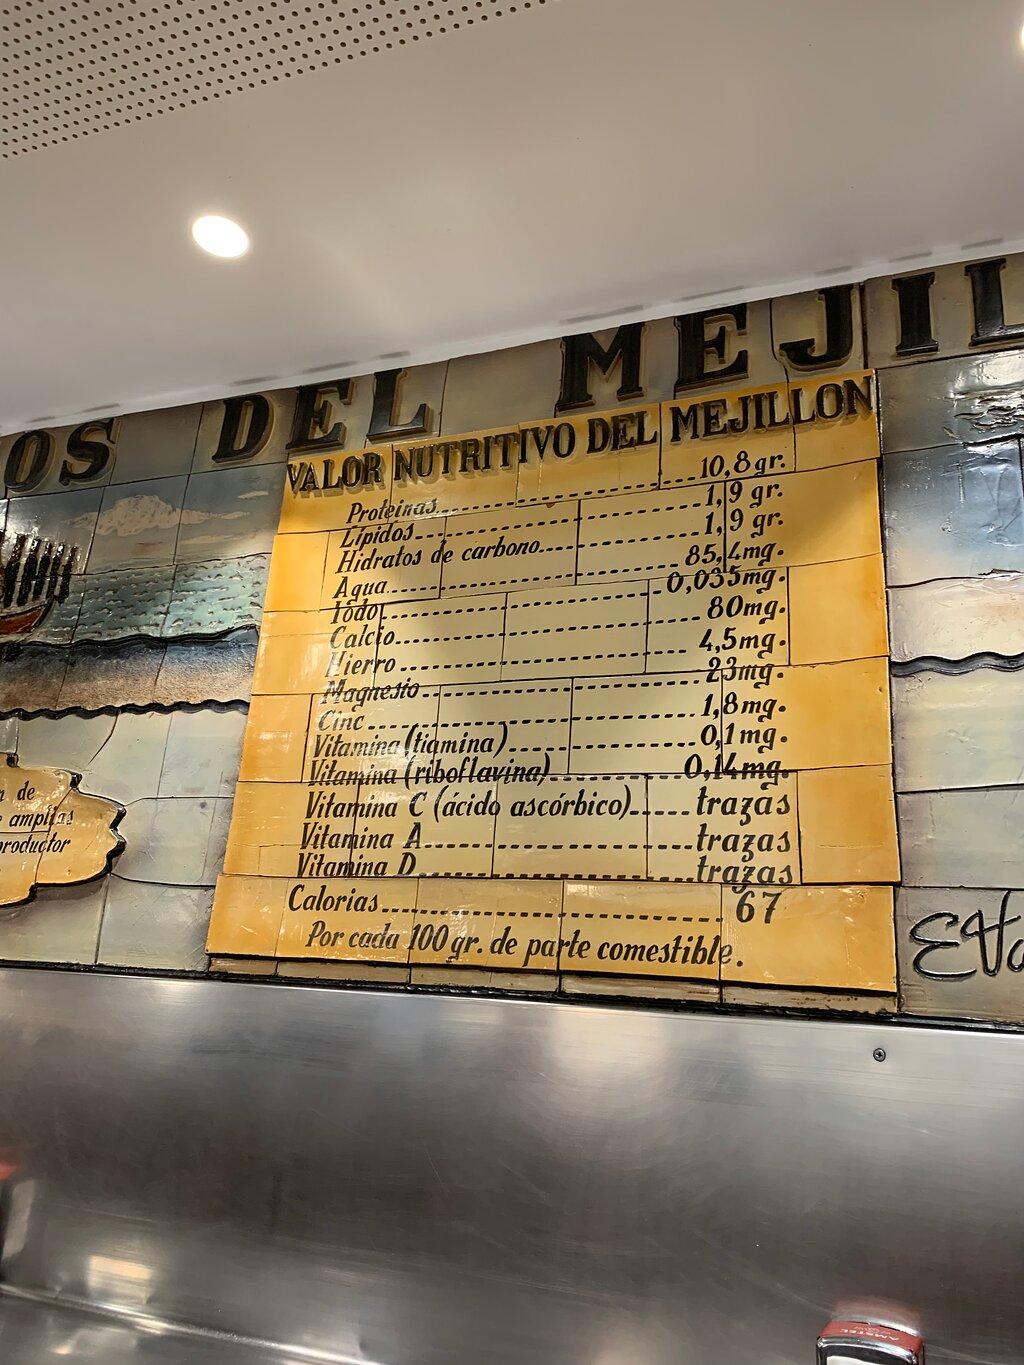 OS DEL MEJIL
VALOR NUTRITIVO DEL MEJILLON
Proteinas.......10,8gr.
Lípidos.......1,9 gr.
Hidratos de carbono.......1,9 gr.
Agua.......85,4mg.
Iodo.......0,035mg.
Calcio.......80mg.
Hierro.......4,5mg.
Magnesio.......23mg.
Cinc.......1,8mg.
Vitamina (tiamina).......0,1mg.
Vitamina (riboflavina).......0,14mg.
Vitamina C (ácido ascórbico).......trazas
Vitamina A.......trazas
Vitamina D.......trazas
Calorias.......67
Por cada 100gr. de parte comestible.
de
amplias
productor
AMSTEL